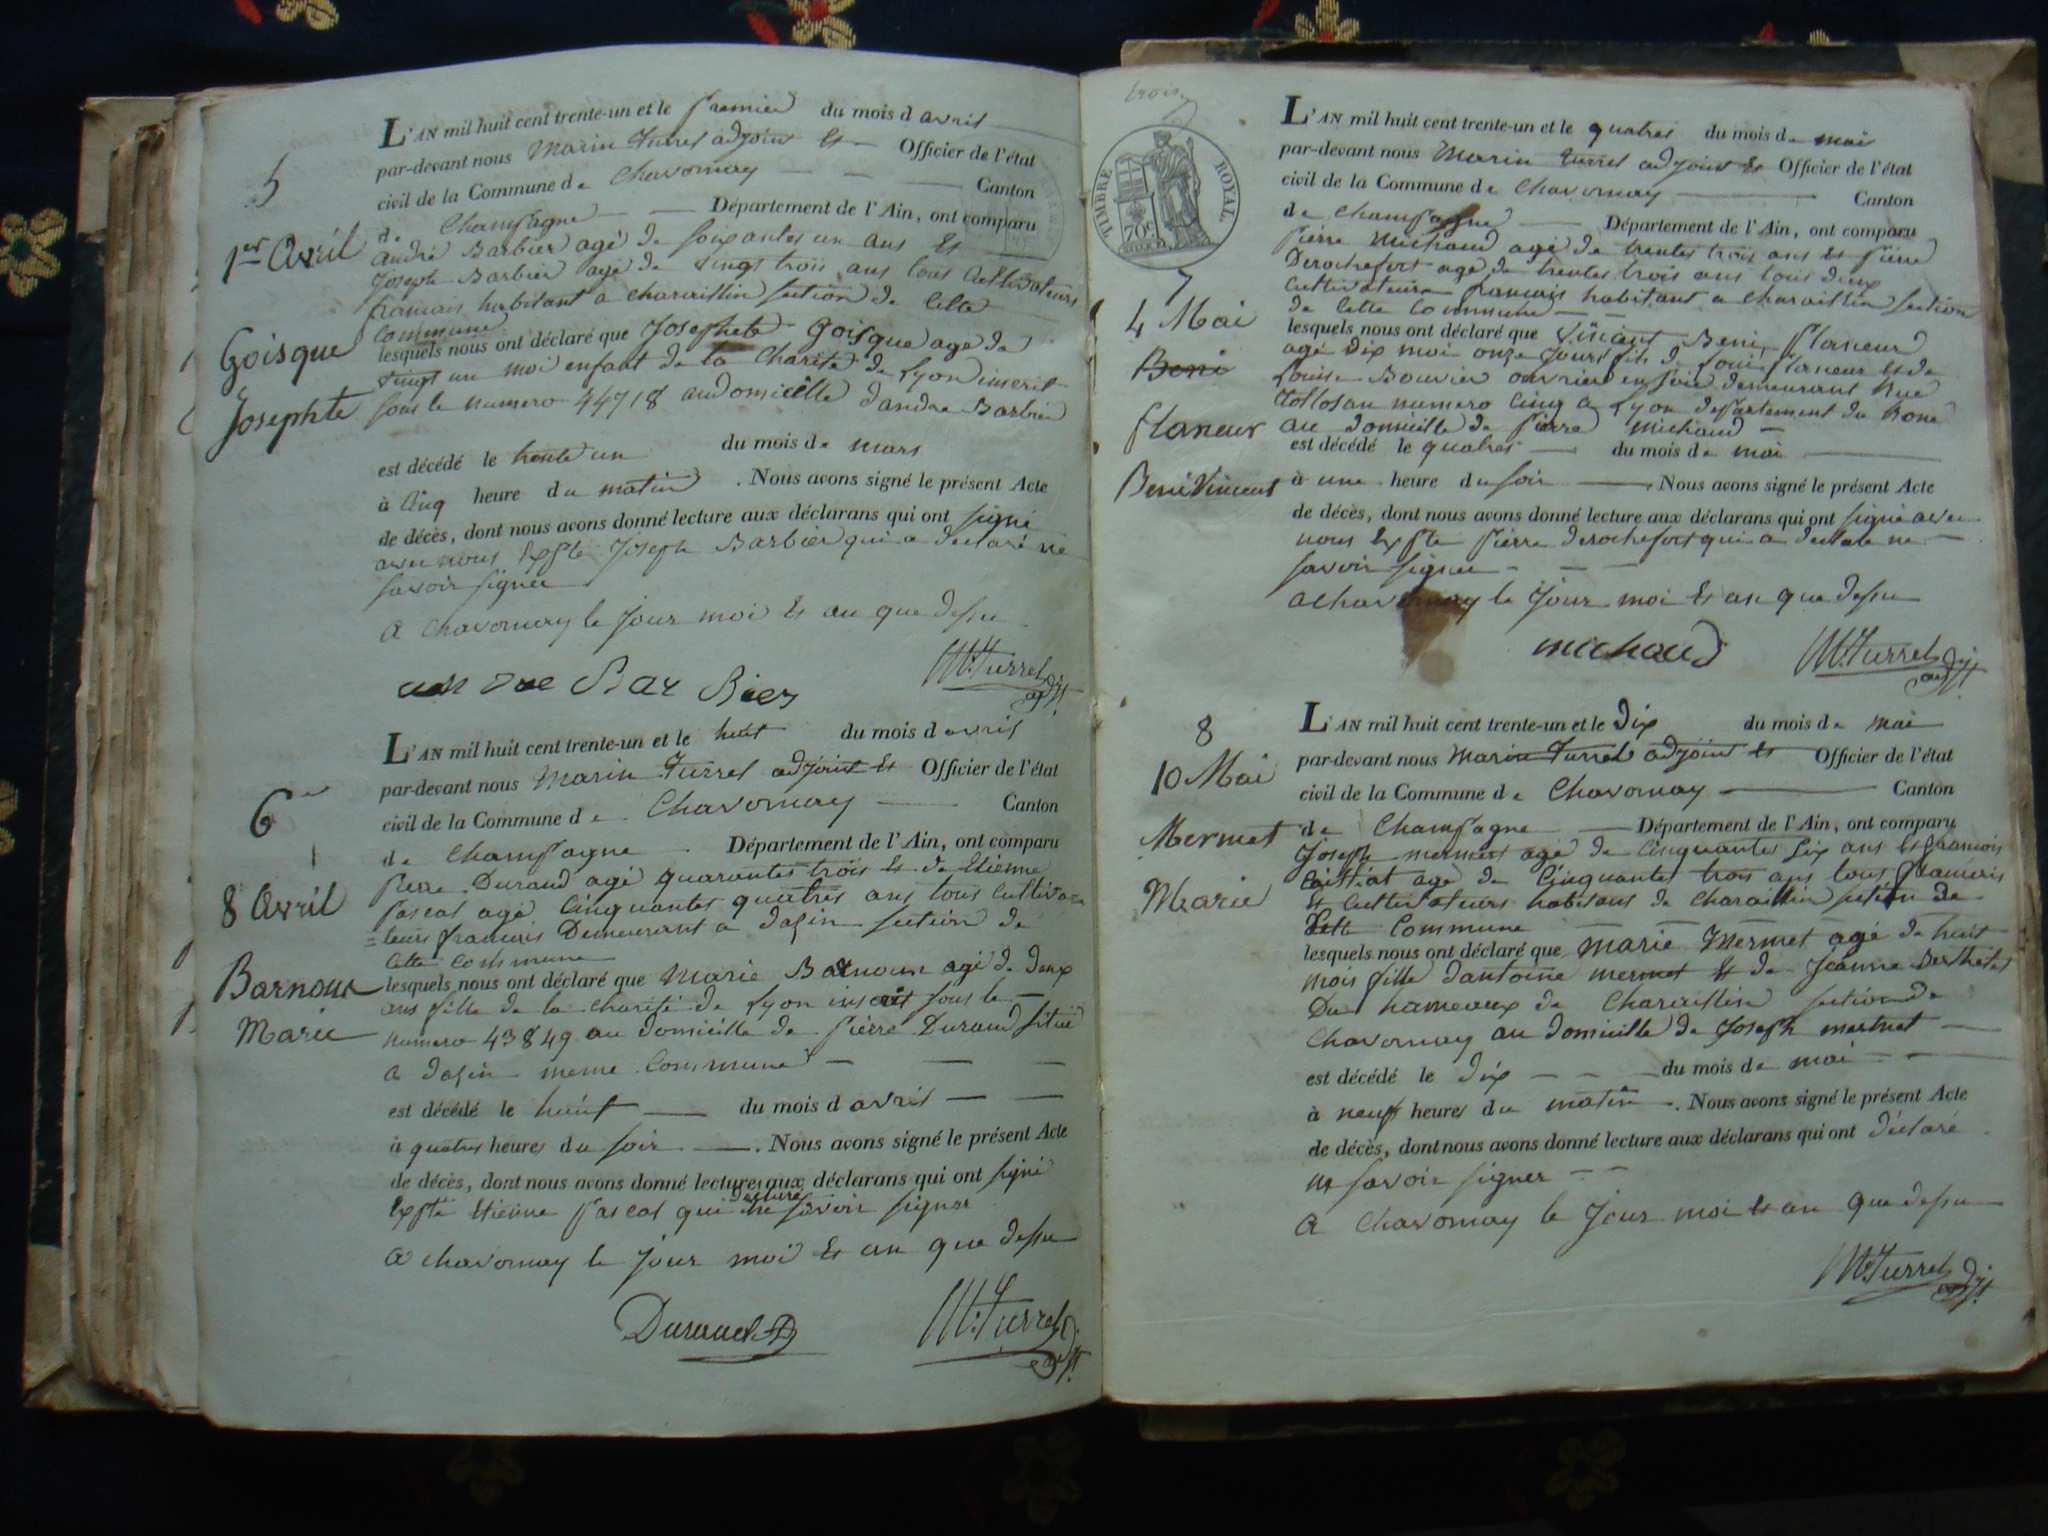 5
1er Avril
Goisque
Josephte
L'AN mil huit cent trente-un et le premier du mois d avril
par-devant nous Marin Turrel adjoint et Officier de l'état
civil de la Commune de Chavornay Canton
de Champagne Département de l'Ain, ont comparu
andré Barbier agé de soixantes un ans et
Joseph Barbier agé de vingt trois ans tous cultivateurs
francais habitant a charaillin section de cette
commune
lesquels nous ont déclaré que Josephete Goisque age de
vingt un moi enfant de la Charité de Lyon inscrit
sous le numero 44718 au domicille d'andre Barbier
est décédé le trente un du mois de mars
à cinq heure du matin . Nous avons signé le présent Acte
de décès, dont nous avons donné lecture aux déclarans qui ont signé
avec nous Expte Joseph Barbier qui a declaré ne
savoir signer
a chavornay le jour moi et an que dessu
an dre Bar Bier
M. Turrel adjt.
6
8 avril
Barnoux
Marie
L'AN mil huit cent trente-un et le huit du mois d avril
par-devant nous Marin Turrel adjoint et Officier de l'état
civil de la Commune de Chavornay Canton
de Champagne Département de l'Ain, ont comparu
pierre Durand agé quarantes trois et de Etienne
pascal agé cinquantes quatres ans tous cultiva=
=teurs francais Demeurant a dazin section de
cette commune
lesquels nous ont déclaré que Marie Barnoux agé de deux
ans fille de la charité de Lyon inscrit sous le
numero 43849 au domicille de pierre Durand situé
a dazin meme commune
est décédé le huit du mois d avril
à quatres heures du soir . Nous avons signé le présent Acte
de décès, dont nous avons donné lecture aux déclarans qui ont signé
Expté Etienne pascal qui declaré ne savoir signer
a chavornay le jour moi et an que dessu
Durand
M. Turrel adjt.
trois
TIMBRE ROYAL
70c
7
4 Mai
Beni
flaneur
Beni Vincent
L'AN mil huit cent trente-un et le quatres du mois de mai
par-devant nous Marin Turrel adjoint et Officier de l'état
civil de la Commune de Chavornay Canton
de Champagne Département de l'Ain, ont comparu
pierre Michaud agé de trentes trois ans et pierre
Derochefort agé de trentes trois ans tous deux
cultivateurs francais habitant a charaillin section
de cette commune
lesquels nous ont déclaré que Vincant Beni flaneur
agé dix moi onze jours fils de Louis flaneur et de
Louise Bouvier ouvrier en soie demeurant Rue
tollosan numero cinq a Lyon departement du Rone
au domicille de pierre michaud
est décédé le quatres du mois de mai
à une heure du soir . Nous avons signé le présent Acte
de décès, dont nous avons donné lecture aux déclarans qui ont signé avec
nous Expte pierre derochefort qui a declare ne
savoir signer
a chavornay le jour moi et an que dessu
michaud
M. Turrel adjt.
8
10 Mai
Mermet
Marie
L'AN mil huit cent trente-un et le dix du mois de mai
par-devant nous Marin Turrel adjoint et Officier de l'état
civil de la Commune de Chavornay Canton
de Champagne Département de l'Ain, ont comparu
Joseph mermet agé de cinquantes six ans et francois
agé de cinquantes trois ans tous francais
et cultivateurs habitans de charaillin section de
cette commune
lesquels nous ont déclaré que marie Mermet agé de huit
mois fille d'antoine mermet et de Jeanne Berthet
Du hameaux de Charaillin section de
Chavornay au domicille de Joseph mermet
est décédé le dix du mois de mai
à neuf heures du matin . Nous avons signé le présent Acte
de décès, dont nous avons donné lecture aux déclarans qui ont déclaré
ne savoir signer
a Chavornay le jour moi et an que dessu
M. Turrel adjt.